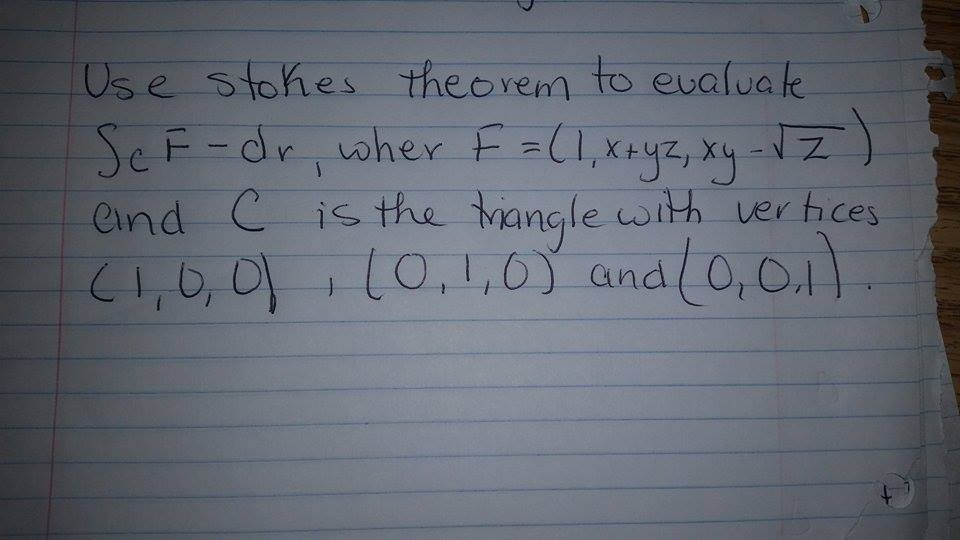 Use stokes theorem to evaluate
∫c F - dr, wher F = (1, x+yz, xy - √z)
and C is the triangle with vertices
(1,0,0), (0,1,0) and (0,0,1).